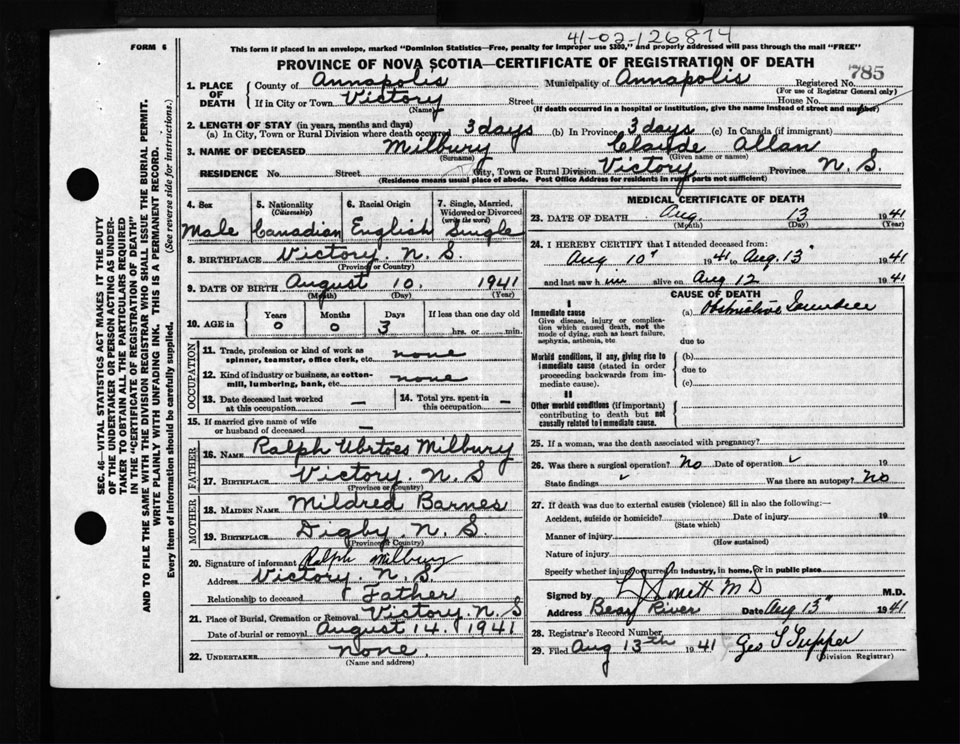 41-02-126874
FORM 6
This form if placed in an envelope, marked "Dominion Statistics—Free, penalty for improper use $300," and properly addressed will pass through the mail "FREE"
PROVINCE OF NOVA SCOTIA—CERTIFICATE OF REGISTRATION OF DEATH
785
1. PLACE OF DEATH
County of Annapolis Municipality of Annapolis Registered No.
(For use of Registrar General only)
If in City or Town Victory Street House No.
(Name) (If death occurred in a hospital or institution, give the name instead of street and number)
2. LENGTH OF STAY (in years, months and days)
(a) In City, Town or Rural Division where death occurred 3 days (b) In Province 3 days (c) In Canada (if immigrant)
3. NAME OF DECEASED Milbury Claude Allan
(Surname) (Given name or names)
RESIDENCE No. Street City, Town or Rural Division Victory Province N. S.
(Residence means usual place of abode. Post Office Address for residents in rural parts not sufficient)
SEC. 46—VITAL STATISTICS ACT MAKES IT THE DUTY
OF THE UNDERTAKER OR PERSON ACTING AS UNDER-
TAKER TO OBTAIN ALL THE PARTICULARS REQUIRED
IN THE "CERTIFICATE OF REGISTRATION OF DEATH"
AND TO FILE THE SAME WITH THE DIVISION REGISTRAR WHO SHALL ISSUE THE BURIAL PERMIT.
WRITE PLAINLY WITH UNFADING INK. THIS IS A PERMANENT RECORD.
Every item of Information should be carefully supplied. (See reverse side for instructions.)
4. Sex
Male
5. Nationality
(Citizenship)
Canadian
6. Racial Origin
English
7. Single, Married,
Widowed or Divorced
(write the word)
Single
8. BIRTHPLACE Victory. N. S.
(Province or Country)
9. DATE OF BIRTH August 10. 1941
(Month) (Day) (Year)
10. AGE in Years Months Days If less than one day old
0 0 3 hrs. or min.
OCCUPATION
11. Trade, profession or kind of work as
spinner, teamster, office clerk, etc. none
12. Kind of industry or business, as cotton-
mill, lumbering, bank, etc. none
13. Date deceased last worked
at this occupation —
14. Total yrs. spent in
this occupation —
15. If married give name of wife
or husband of deceased —
FATHER
16. NAME Ralph Milbury
17. BIRTHPLACE Victory. N. S
(Province or Country)
MOTHER
18. MAIDEN NAME Mildred Barnes
19. BIRTHPLACE Digby N. S.
(Province or Country)
20. Signature of informant Ralph Milbury
Address Victory. N. S.
Relationship to deceased Father
21. Place of Burial, Cremation or Removal Victory. N. S
Date of burial or removal August 14. 1941
22. UNDERTAKER none.
(Name and address)
MEDICAL CERTIFICATE OF DEATH
23. DATE OF DEATH Aug. 13 1941
(Month) (Day) (Year)
24. I HEREBY CERTIFY that I attended deceased from:
Aug 10" 1941 to Aug. 13" 1941
and last saw h im alive on Aug 12 1941
CAUSE OF DEATH
I
Immediate cause
Give disease, injury or complica-
tion which caused death, not the
mode of dying, such as heart failure,
asphyxia, asthenia, etc.
(a) Obstructive Jaundice
due to
Morbid conditions, if any, giving rise to
immediate cause (stated in order
proceeding backwards from im-
mediate cause).
(b)
due to
(c)
II
Other morbid conditions (if important)
contributing to death but not
causally related to immediate cause.
25. If a woman, was the death associated with pregnancy?
26. Was there a surgical operation? No Date of operation 19
State findings Was there an autopsy? No
27. If death was due to external causes (violence) fill in also the following:—
Accident, suicide or homicide? Date of injury 19
(State which)
Manner of injury
(How sustained)
Nature of injury
Specify whether injury occurred in industry, in home, or in public place
Signed by M D M.D.
Address Bear River Date Aug 13" 1941
28. Registrar's Record Number
29. Filed Aug 13th 1941 Geo S Tupper
(Division Registrar)